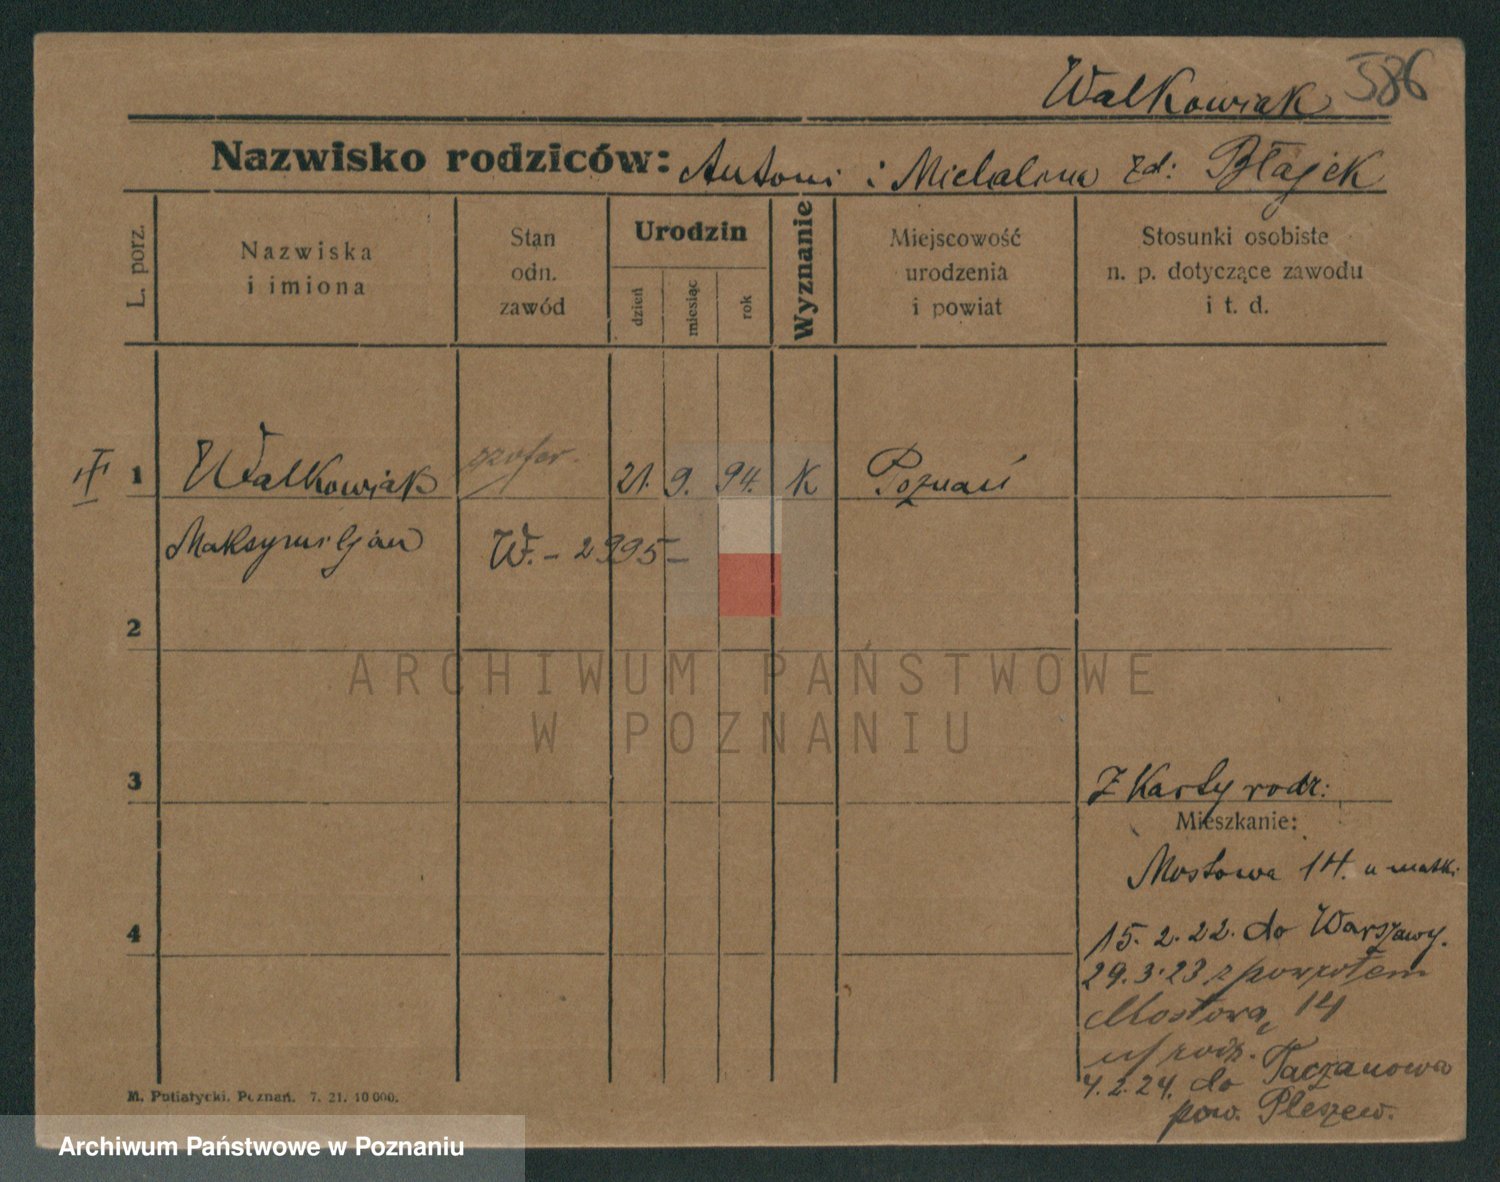 Walkowiak 586
Nazwisko rodziców: Antoni i Michalina zd: Błajek
L. porz.
Nazwiska
i imiona
Stan
odn.
zawód
Urodzin
dzień
miesiąc
rok
Wyznanie
Miejscowość
urodzenia
i powiat
Stosunki osobiste
n. p. dotyczące zawodu
i t. d.
1 Walkowiak szofer. 21. 9. 94. K Poznań
Maksymiljan W. - 2995 -
2
ARCHIWUM PAŃSTWOWE
W POZNANIU
3
Z Karty rodz:
Mieszkanie:
Mostowa 14. u matki
4
15. 2. 22. do Warszawy.
29. 3. 23 z powrotem
Mostowa 14
u rodz.
4. 2. 24. do Taczanowa
pow. Pleszew.
M. Putiatycki, Poznań. 7. 21. 10 000.
Archiwum Państwowe w Poznaniu